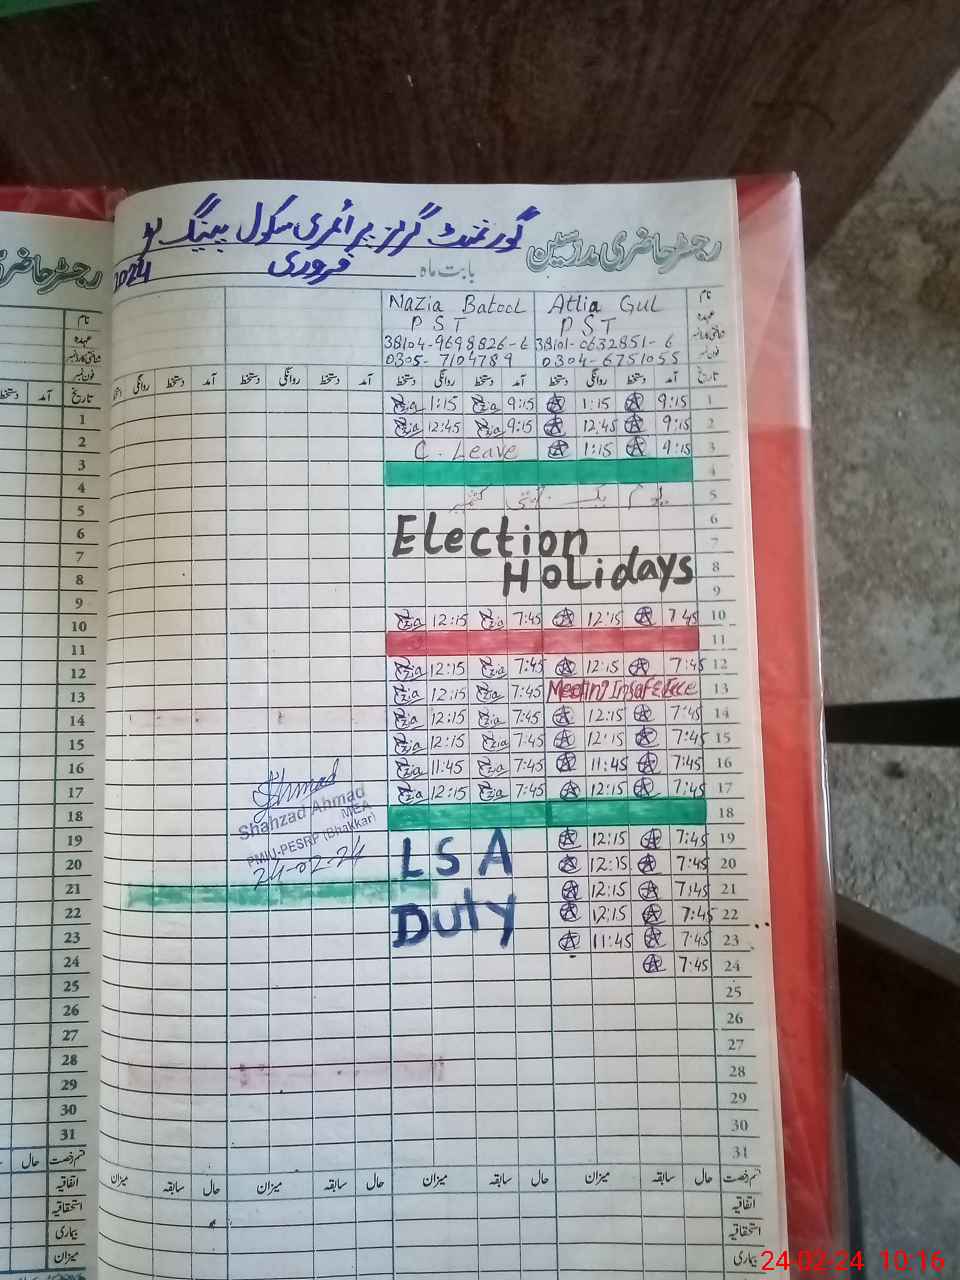 رجسٹر حاضری مدرسین گورنمنٹ گرلز پرائمری سکول
بابت ماہ فروری 2024
نام Attia Gul Nazia Batool
عہدہ PST PST
شناختی کارڈ نمبر 38101-0632851-6 38104-9698826-6
فون نمبر 0304-6751055 0305-7104789
تاریخ آمد دستخط روانگی دستخط آمد دستخط روانگی دستخط آمد دستخط روانگی دستخط آمد دستخط روانگی
1 9:15 1:15 9:15 Zia 1:15 Zia
2 9:15 12:45 9:15 Zia 12:45 Zia
3 9:15 1:15 C. Leave
4
5 یوم یکجہتی کشمیر
6
7
8
9
Election
Holidays
10 7:45 12:15 7:45 Zia 12:15 Zia
11
12 7:45 12:15 7:45 Zia 12:15 Zia
13 Meeting 7:45 Zia 12:15 Zia
14 7:45 12:15 7:45 Zia 12:15 Zia
15 7:45 12:15 7:45 Zia 12:15 Zia
16 7:45 11:45 7:45 Zia 11:45 Zia
17 7:45 12:15 7:45 Zia 12:15 Zia
18
19 7:45 12:15
20 7:45 12:15
21 7:45 12:15
22 7:45 12:15
23 7:45 11:45
24 7:45
LSA
Duty
Ahmad
Shahzad Ahmad
MEA
PMIU-PESRP (Bhakkar)
24-02-24
25
26
27
28
29
30
31
قسم رخصت حال سابقہ میزان حال سابقہ میزان حال سابقہ میزان
اتفاقیہ
استحقاقیہ
بیماری
رجسٹر حاضری
نام
عہدہ
شناختی کارڈ نمبر
فون نمبر
تاریخ آمد دستخط
1
2
3
4
5
6
7
8
9
10
11
12
13
14
15
16
17
18
19
20
21
22
23
24
25
26
27
28
29
30
31
قسم رخصت حال
اتفاقیہ
استحقاقیہ
بیماری
میزان
24-02-24 10:16